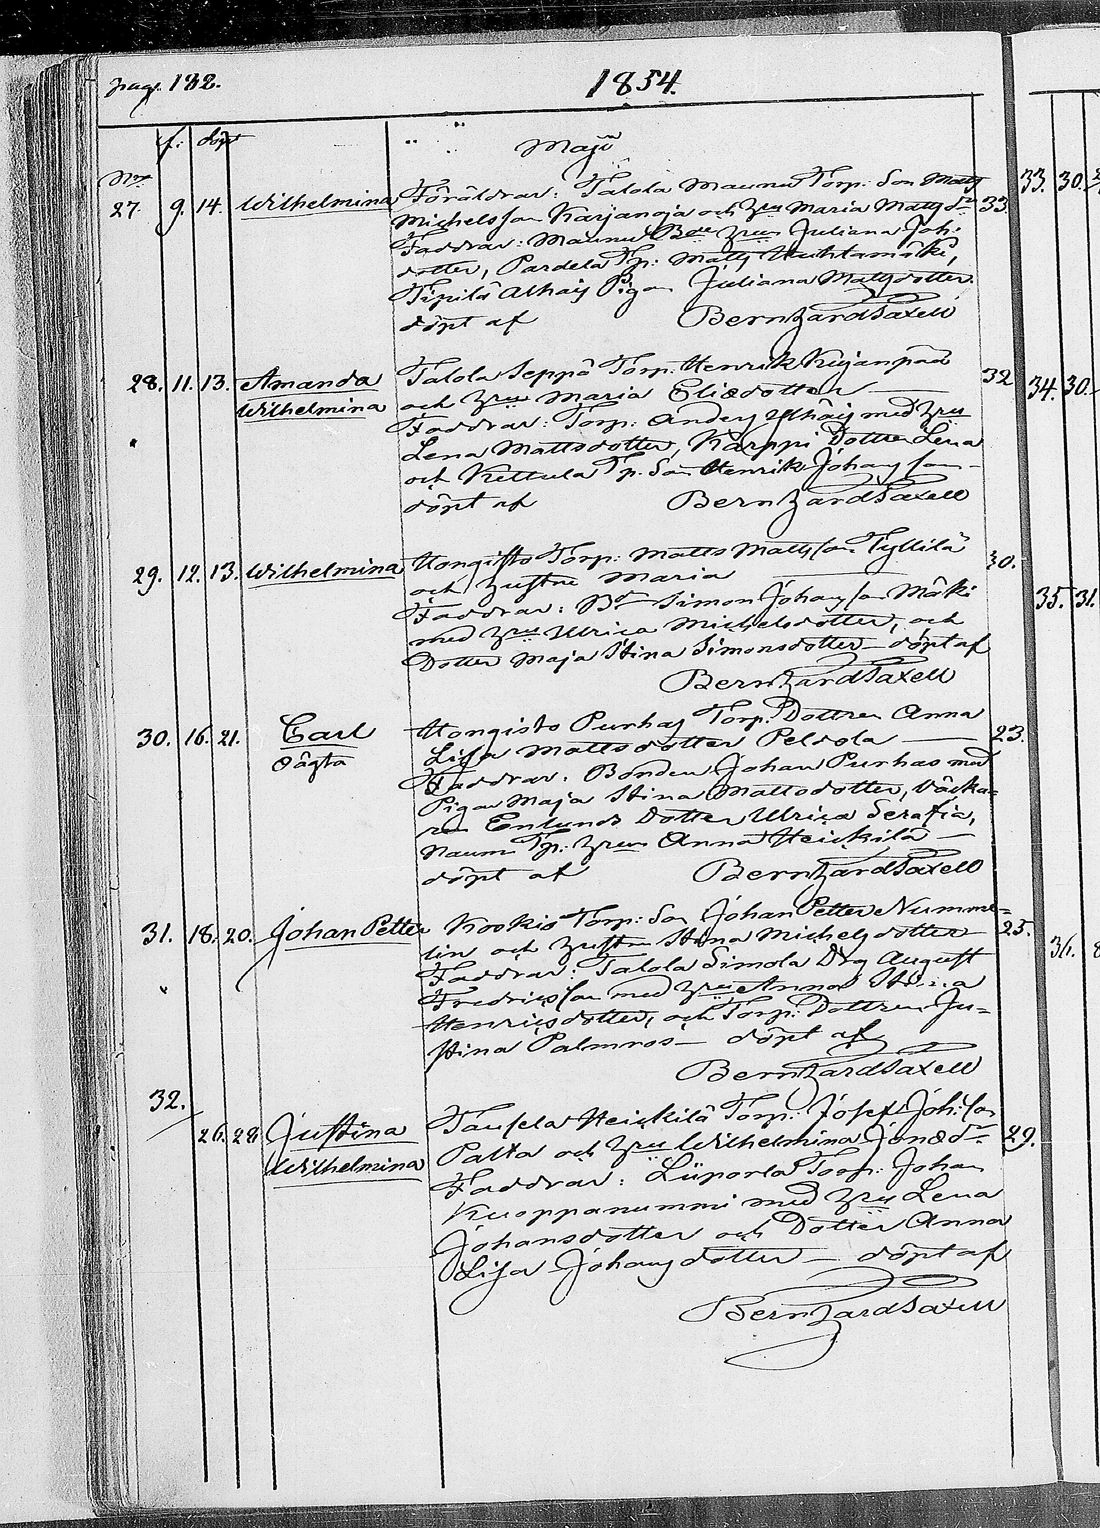 pag. 182.
1854.
f: döpt
Maji
No
27. 9. 14. Wilhelmina Föräldrar: Talola Maunu Torp: Son Matts 33.
Michelsson Karjanoja och Hru Maria Mattsdr
Faddrar: Maunu Bde Hru Juliana Joh:
dotter, Pardela Tp: Matts Huhtamäki,
Tipilä Alhais Pigan Juliana Mattsdotter.
döpt af Bernhard Saxell
28. 11. 13. Amanda Talola Seppä Torp. Henrik Kujanpää 32
Wilhelmina och Hru Maria Eliædotter
Faddrar: Torp: Anders Ylhäis med Hru
Lena Mattsdotter, Karppi Dotter Lena
och Kettula Tp. Son Henrik Johansson
döpt af Bernhard Saxell
29. 12. 13. Wilhelmina Hongisto Torp: Matts Mattsson Tyllilä 30.
och Hustru Maria
Faddrar: Bd Simon Johansson Mäki
med Hru Ulrica Michelsdotter, och
Dotter Maja Stina Simonsdotter döpt af
Bernhard Saxell
30. 16. 21. Carl Hongisto Purhas Torp. Dottren Anna 23.
oägta Lisa Mattsdotter Peldola
Faddrar: Bonden Johan Purhas med
Pigan Maja Stina Mattsdotter,
Enlunds Dotter Ulrica Serafia,
Naum Tp: Hrun Anna Heickilä
döpt af Bernhard Saxell
31. 18. 20. Johan Petter Kookis Torp: Son Johan Petter Numme= 25.
lin och Hustru Stina Michelsdotter
Faddrar: Talola Simola Drg August
Fredricsson med Hru Anna Stina
Henricsdotter, och Torp: Dottren Ju=
stina Palmros döpt af
Bernhard Saxell
32.
26. 28 Justina Taufela Heickilä Torp: Josef Joh:son 29.
Wilhelmina Palta och Hru Wilhelmina Jonædr
Faddrar: Torp: Johan
Kuoppanummi med Hru Lena
Johansdotter och Dotter Anna
Lisa Johansdotter döpt af
Bernhard Saxell
33. 30.
34. 30.
35. 31.
36. 8